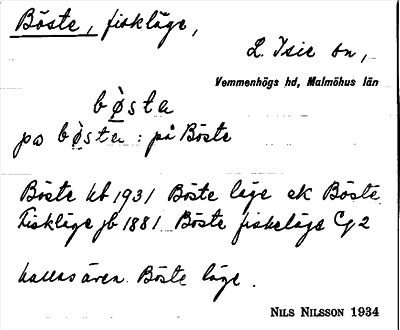 Böste, fiskläge,
L. Isie sn,
Vemmenhögs hd, Malmöhus län
bø̀sta
po bø̀sta : på Böste
Böste kb 1931 Böste läge ek Böste
Fiskläge jb 1881 Böste fiskeläge Cg 2
kallas även Böste läge.
NILS NILSSON 1934